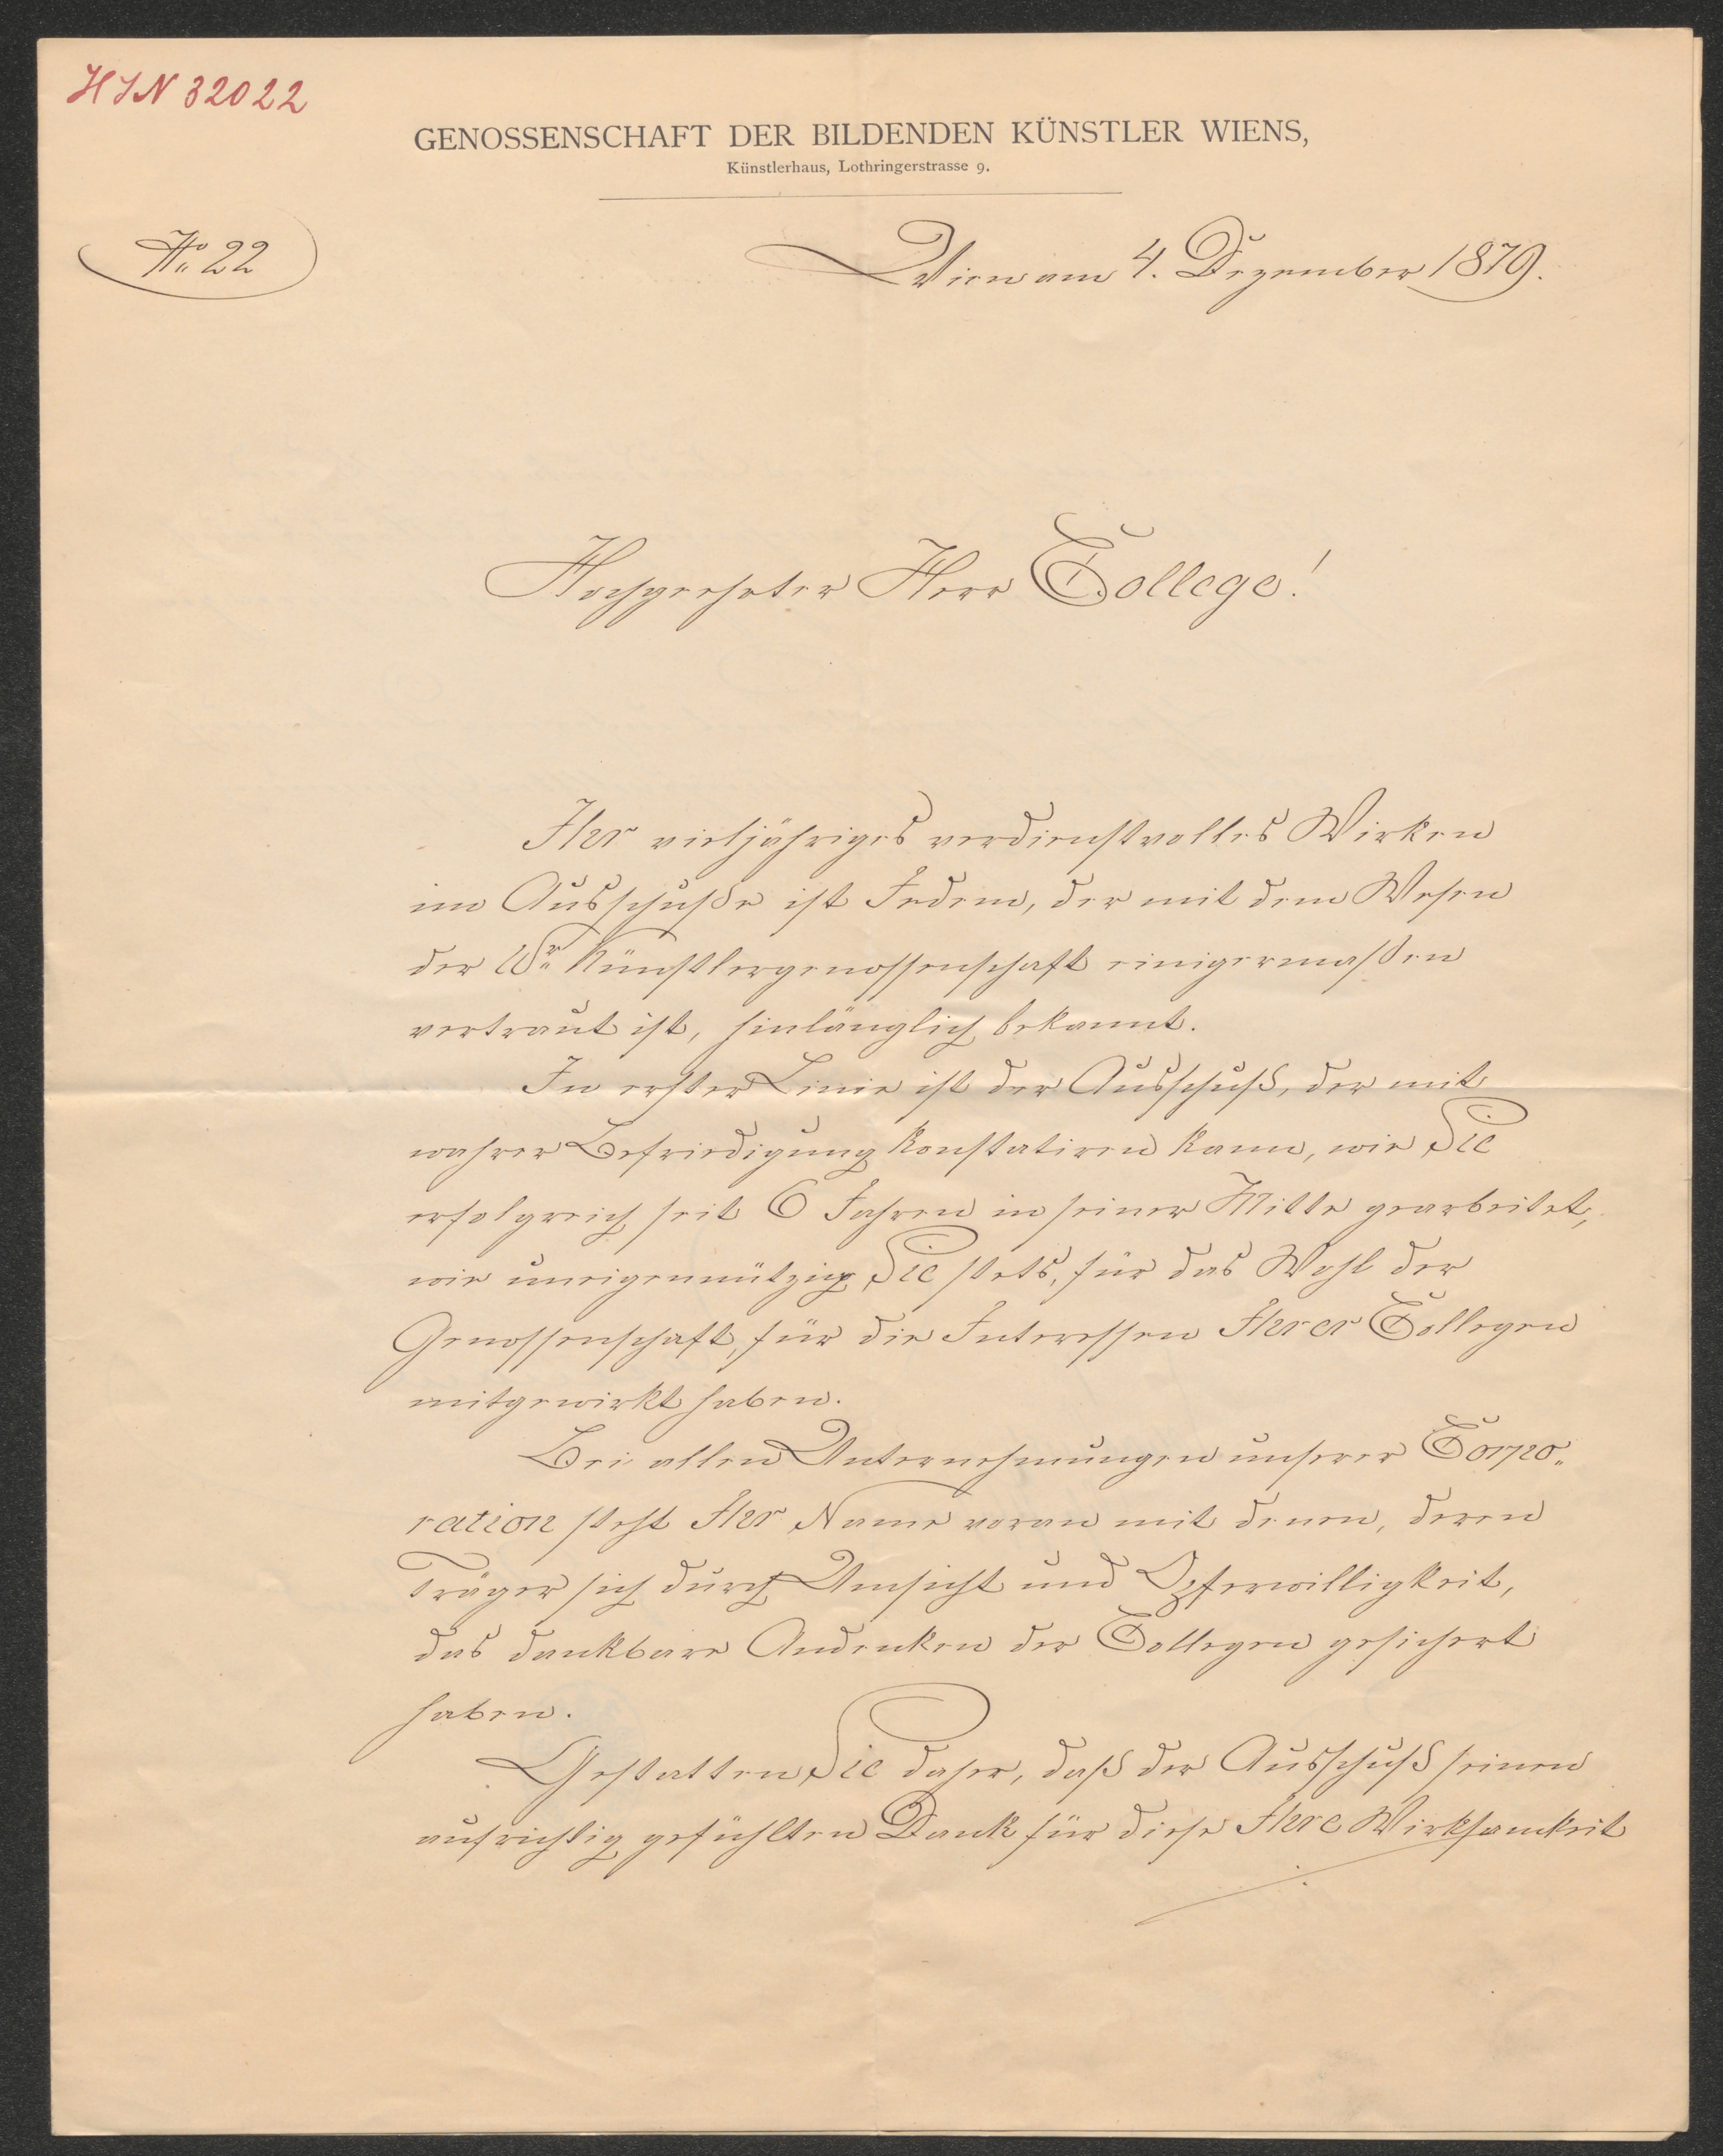 HIN 32022
GENOSSENSCHAFT DER BILDENDEN KÜNSTLER WIENS,
Künstlerhaus, Lothringerstrasse 9.
No 22
Wien am 4. Dezember 1879.
Hochgeehrter Herr College!
Ihr vieljähriges verdienstvolles Wirken
im Ausschuße ist Jedem, der mit dem Wesen
der Wr. Künstlergenossenschaft einigermaßen
vertraut ist, hinlänglich bekannt.
In erster Linie ist der Ausschuß, der mit
wahrer Befriedigung konstatiren kann, wie Sie
erfolgreich seit 6 Jahren in seiner Mitte gearbeitet,
wie uneigennützig Sie stets, für das Wohl der
Genossenschaft, für die Interessen Ihrer Collegen
mitgewirkt haben.
Bei allen Unternehmungen unserer Corpo„
ration steht Ihr Name voran mit denen, deren
Träger sich durch Umsicht und Opferwilligkeit,
das dankbare Andenken der Collegen gesichert
haben.
Gestatten Sie daher, daß der Ausschuß seinen
aufrichtig gefühlten Dank für diese Ihre Wirksamkeit